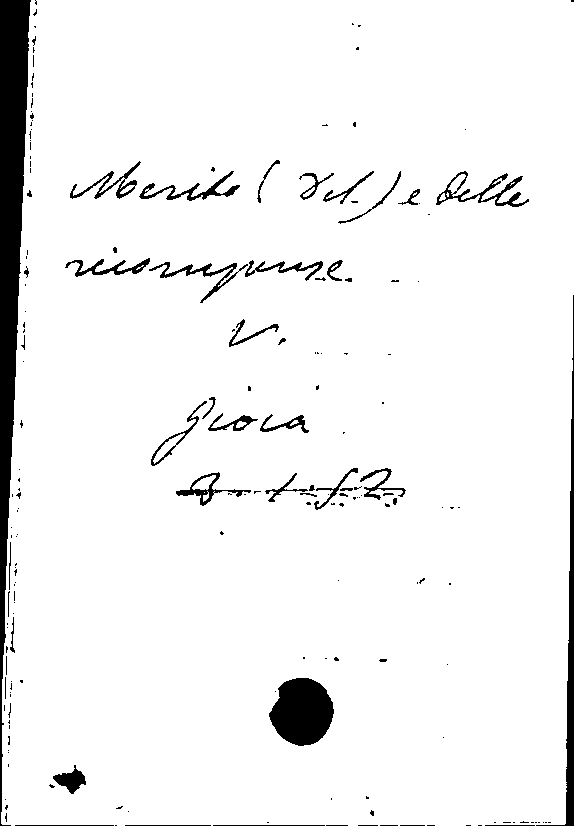 Merito (Del.) e delle
ricompense.
V.
Gioia